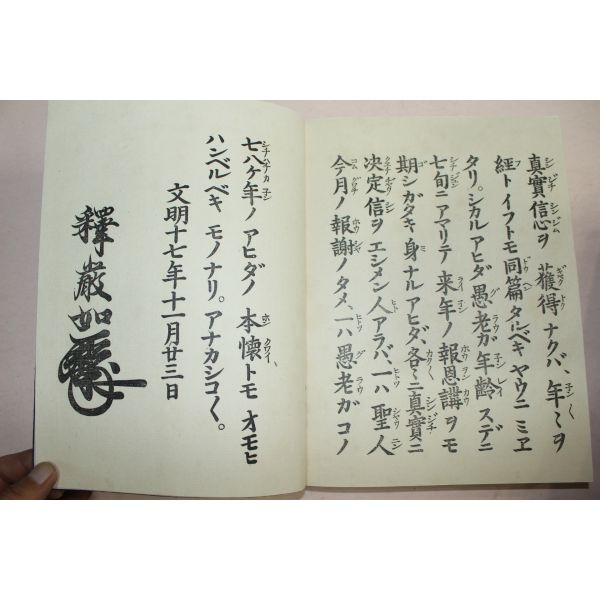 真實信心ヲ獲得ナクバ、年〻ヲ
經トイフトモ同篇タルベキヤウニミヱ
タリ。シカルアヒダ愚老ガ年齡スデニ
七旬ニアマリテ来年ノ報恩講ヲモ
期シガタキ身ナルアヒダ、各〻ニ真實ニ
决定信ヲエシメン人アラバ、一ハ聖人
今月ノ報謝ノタメ、一ハ愚老ガコノ
七八ヶ年ノアヒダノ本懷トモオモヒ
ハンベルベキモノナリ。アナカシコ〱。
文明十七年十一月廿三日
釋嚴如